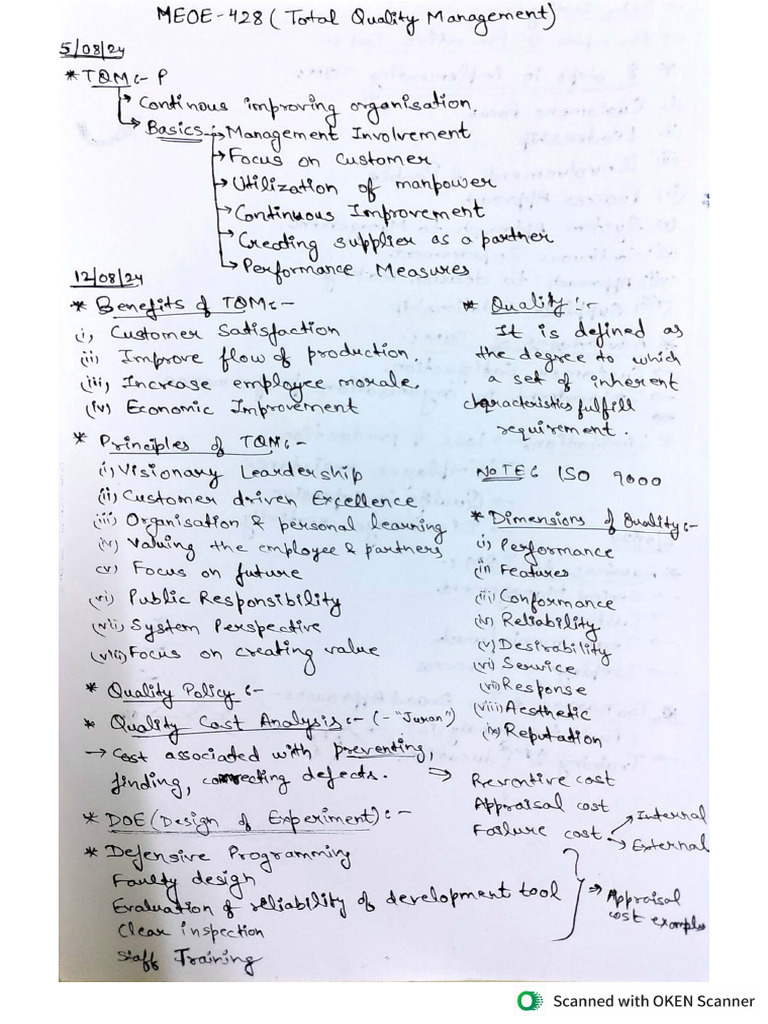 MEOE-428 (Total Quality Management)
5/08/24
* TQM:- P
→ Continous improving organisation.
→ Basics → Management Involvement
→ Focus on Customer
→ Utilization of manpower
→ Continuous Improvement
→ Creating supplier as a partner
→ Performance Measures
12/08/24
* Benefits of TQM:-
(i) Customer Satisfaction
(ii) Improve flow of production.
(iii) Increase employee morale.
(iv) Economic Improvement
* Principles of TQM:-
(i) Visionary Leardership
(ii) Customer driven Excellence
(iii) Organisation & personal learning
(iv) Valuing the employee & partners
(v) Focus on future
(vi) Public Responsibility
(vii) System Perspective
(viii) Focus on creating value
* Quality :-
It is defined as
the degree to which
a set of inherent
characteristics fulfill
requirement.
NOTE: ISO 9000
* Dimensions of Quality:-
(i) Performance
(ii) Features
(iii) Conformance
(iv) Reliability
(v) Desirability
(vi) Service
(vii) Response
(viii) Aesthetic
(ix) Reputation
* Quality Policy :-
* Quality Cost Analysis:- (- "Juran")
→ Cost associated with preventing,
finding, correcting defects.
⇒ Preventive cost
Appraisal cost
Failure cost → Internal
→ External
* DOE (Design of Experiment):-
* Defensive Programming
Faulty design
Evaluation of reliability of development tool
Clear inspection
Staff Training
⇒ Appraisal
cost examples
Scanned with OKEN Scanner